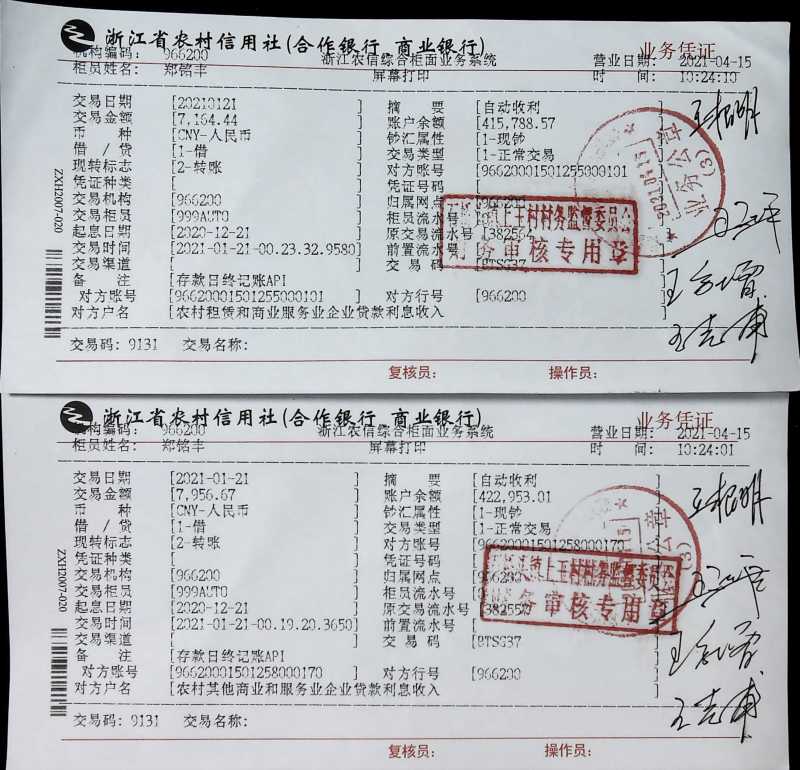 浙江省农村信用社(合作银行 商业银行) 业务凭证
机构编码: 966200 浙江农信综合柜面业务系统 营业日期: 2021-04-15
柜员姓名: 郑铭丰 屏幕打印 时 间: 10:24:10
交易日期 [20210121 ] 摘 要 [自动收利 ]
交易金额 [7,164.44 ] 账户余额 [415,788.57 ]
币 种 [CNY-人民币 ] 钞汇属性 [1-现钞 ]
借 / 贷 [1-借 ] 交易类型 [1-正常交易 ]
现转标志 [2-转账 ] 对方账号 [96620001501255000101
凭证种类 [ ] 凭证号码 [
交易机构 [966200 ] 归属网点 [966200
交易柜员 [999AUTO ] 柜员流水号
起息日期 [2020-12-21 ] 原交易流水号
交易时间 [2021-01-21-00.23.32.9580] 前置流水号
交易渠道 [ ] 交 易 码 [BTSG37
备 注 [存款日终记账API
对方账号 [96620001501255000101 ] 对方行号 [966200 ]
对方户名 [农村租赁和商业服务业企业贷款利息收入 ]
交易码: 9131 交易名称:
复核员: 操作员:
ZXH2007-020
2021.04.15
业务公章
(3)
上王村村务监督委员会
务审核专用章
浙江省农村信用社(合作银行 商业银行) 业务凭证
机构编码: 966200 浙江农信综合柜面业务系统 营业日期: 2021-04-15
柜员姓名: 郑铭丰 屏幕打印 时 间: 10:24:01
交易日期 [2021-01-21 ] 摘 要 [自动收利 ]
交易金额 [7,956.67 ] 账户余额 [422,953.01 ]
币 种 [CNY-人民币 ] 钞汇属性 [1-现钞 ]
借 / 贷 [1-借 ] 交易类型 [1-正常交易 ]
现转标志 [2-转账 ] 对方账号 [96620001501258000170
凭证种类 [ ] 凭证号码 [
交易机构 [966200 ] 归属网点 [966200
交易柜员 [999AUTO ] 柜员流水号
起息日期 [2020-12-21 ] 原交易流水号
交易时间 [2021-01-21-00.19.20.3650] 前置流水号
交易渠道 [ ] 交 易 码 [BTSG37 ]
备 注 [存款日终记账API ]
对方账号 [96620001501258000170 ] 对方行号 [966200 ]
对方户名 [农村其他商业和服务业企业贷款利息收入 ]
交易码: 9131 交易名称:
复核员: 操作员:
ZXH2007-020
(3)
镇上王村村务监督委员会
务审核专用章